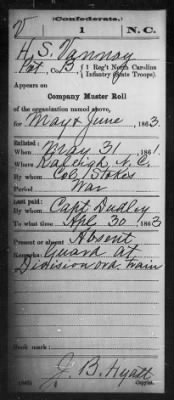 (Confederate.)
V 1 N.C.
H. S. Vannoy
Pvt., Co. B, 1 Reg't North Carolina
Infantry (State Troops)
Appears on
Company Muster Roll
of the organization named above,
for May & June, 1863.
Enlisted:
When May 31, 1861.
Where Raleigh, N.C.
By whom Col. Stokes
Period War
Last paid:
By whom Capt Dudley
To what time Apl 30, 1863
Present or absent Absent
Remarks: Guard at
Division ord. train
Book mark:
J. B. Hyatt
Copyist.